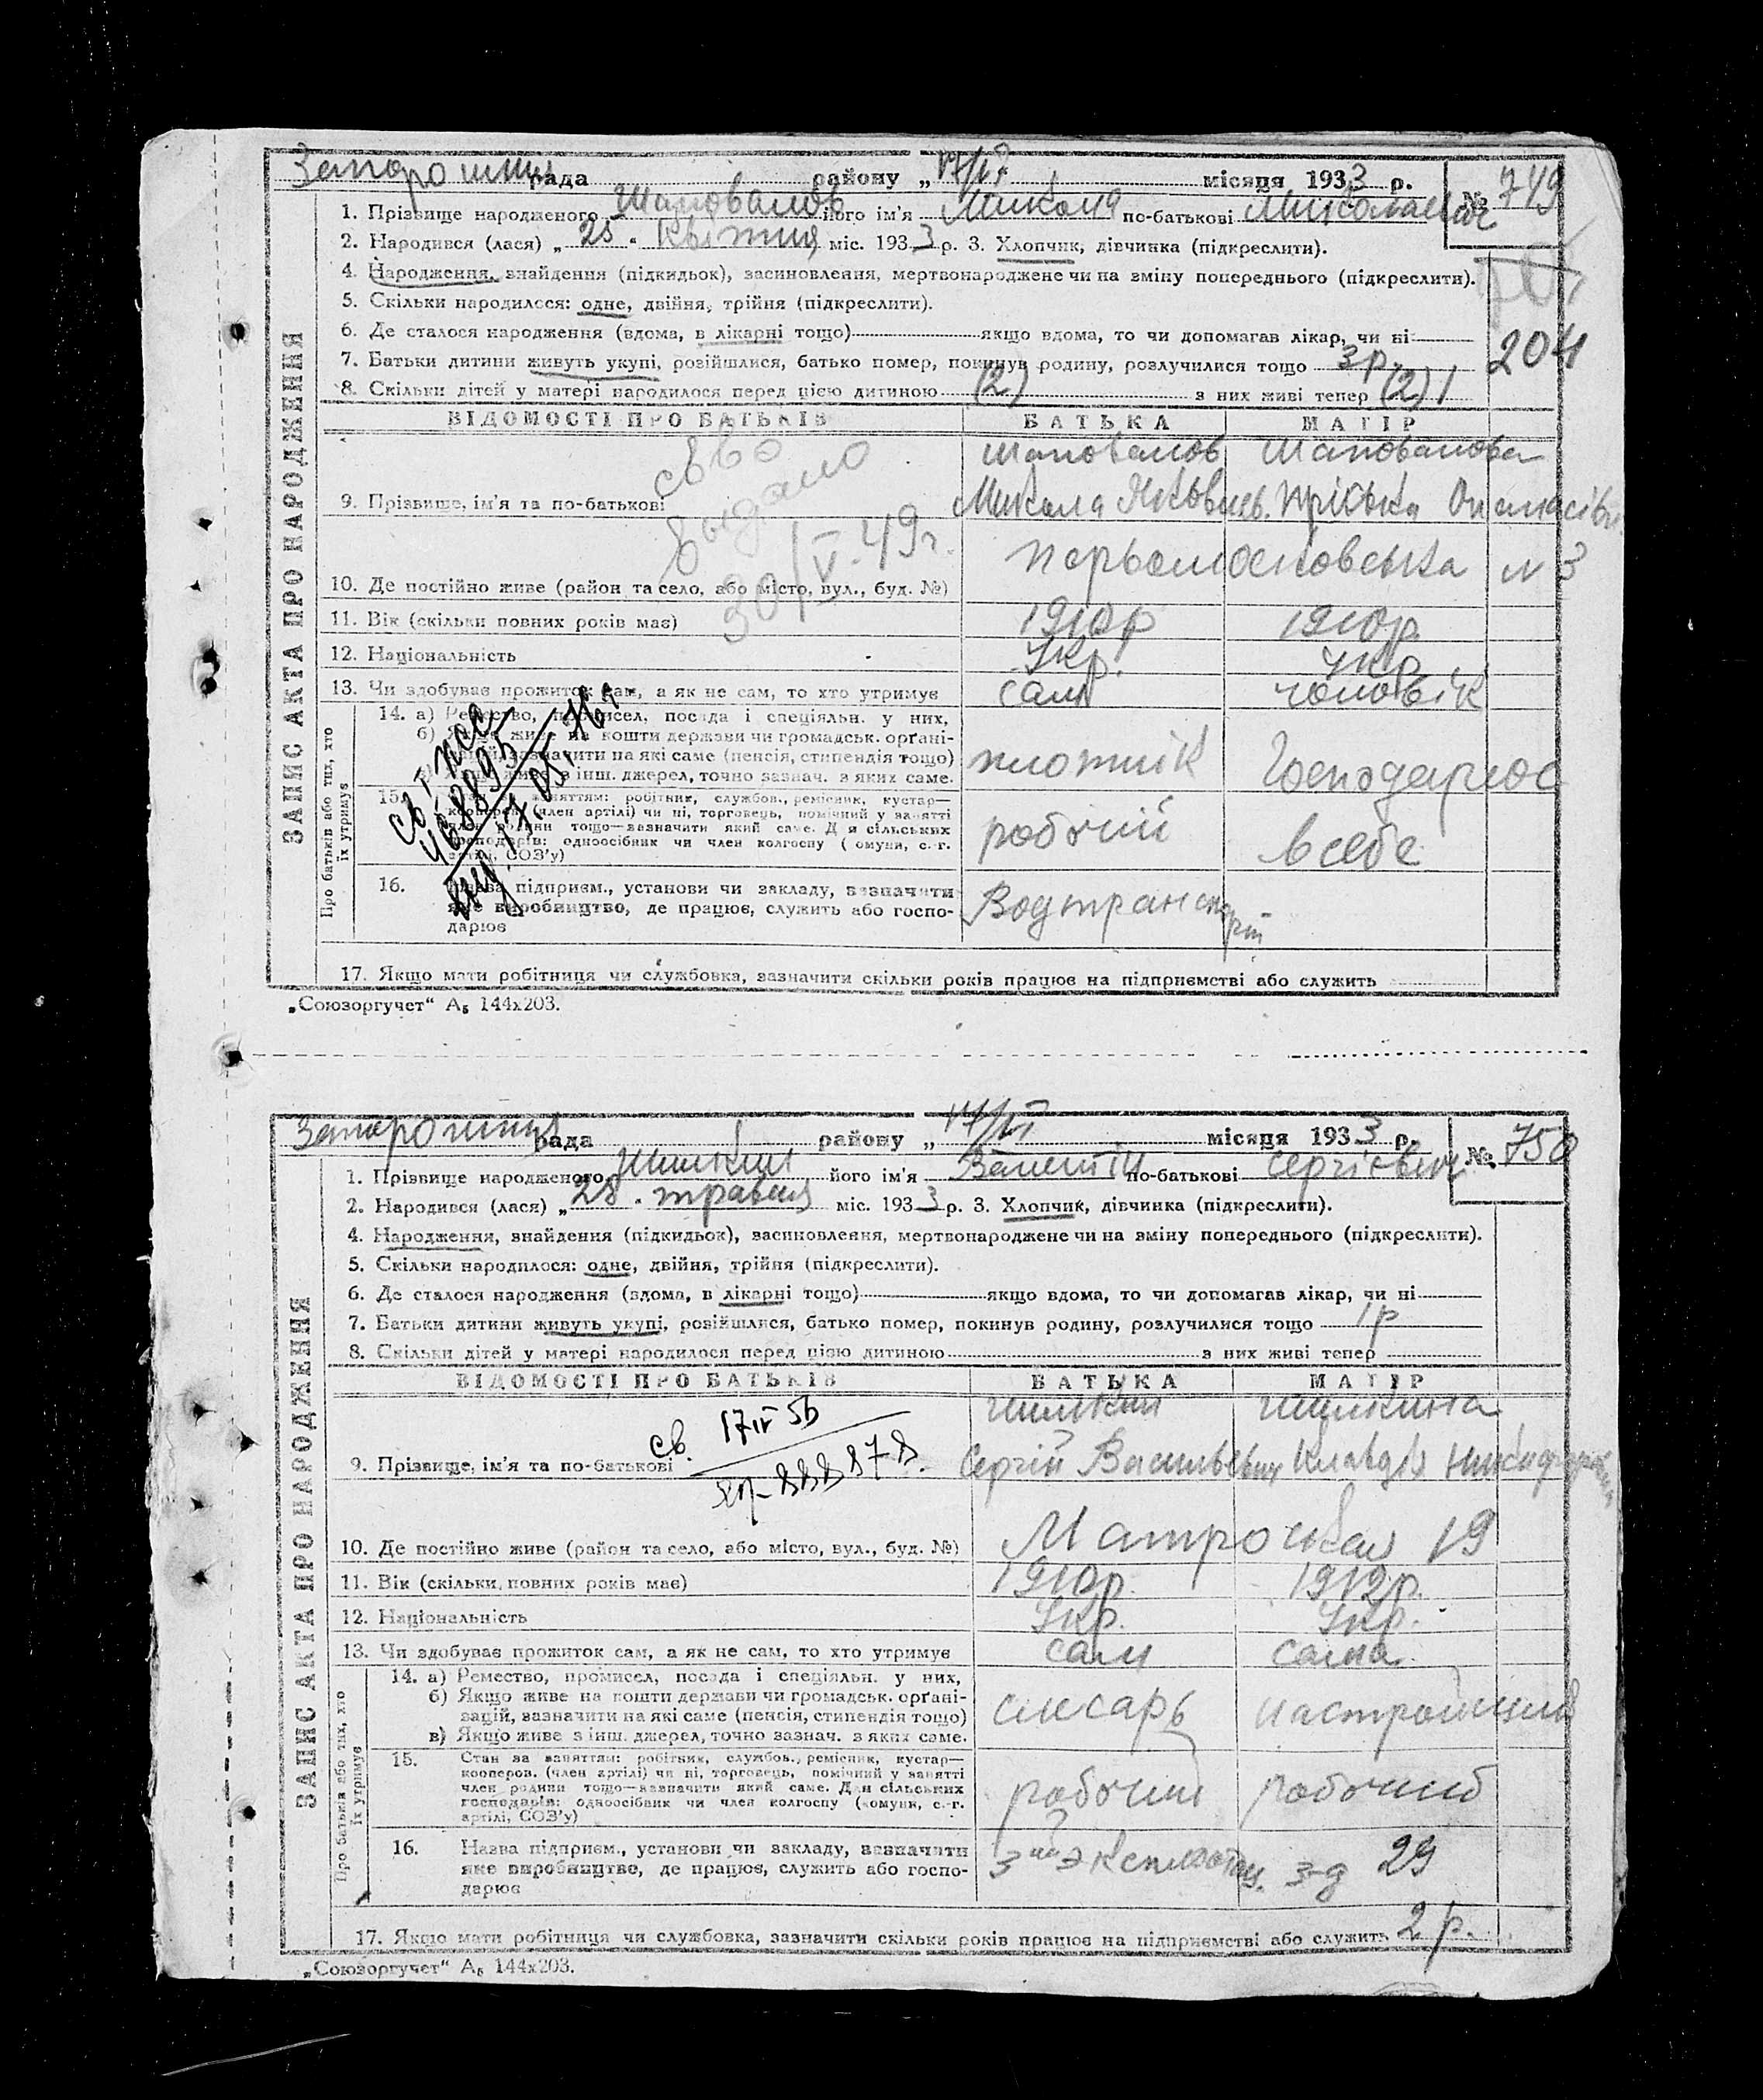 рада району „17/VI місяця 1933 р. № 749
1. Прізвище народженого Шаповалов його ім'я Микола по-батькові Миколаєвич
2. Народився (лася) „25“ квітня міс. 1933 р. 3. Хлопчик, дівчинка (підкреслити).
4. Народження, знайдення (підкидьок), засиновлення, мертвонароджене чи на зміну попереднього (підкреслити).
5. Скільки народилося: одне, двійня, трійня (підкреслити).
6. Де сталося народження (вдома, в лікарні тощо) якщо вдома, то чи допомагав лікар, чи ні
204
7. Батьки дитини живуть укупі, розійшлися, батько помер, покинув родину, розлучилися тощо 3 р.
8. Скільки дітей у матері народилося перед цією дитиною (2) з них живі тепер (2) 1
ЗАПИС АКТА ПРО НАРОДЖЕННЯ
ВІДОМОСТІ ПРО БАТЬКІВ БАТЬКА МАТІР
Шаповалов Шаповалова
9. Прізвище, ім'я та по-батькові Микола Яковлев. Пріська
св-во
выдано
30/V-49г.
10. Де постійно живе (район та село, або місто, вул., буд. №) N 3
11. Вік (скільки повних років має) 1910р 1910р.
12. Національність Укр. Укр.
13. Чи здобуває прожиток сам, а як не сам, то хто утримує сам чоловік
Про батьків або тих, хто їх утримує
14. а) Ремество, промисел, посада і спеціяльн. у них,
б) Якщо живе на кошти держави чи громадськ. орґані-
зацій, зазначити на які саме (пенсія, стипендія тощо) плотнік
в) Якщо живе з інш. джерел, точно зазнач. з яких саме.
15. Стан за заняттям: робітник, службов., ремісник, кустар—
кооперов. (член артілі) чи ні, торговець, помічний у занятті
член родини тощо—зазначити який саме. Для сільських
господарів: одноосібник чи член колгоспу (комуни, с.-г.
артілі, СОЗ'у) робочий в себе
16. Назва підприєм., установи чи закладу, зазначити
яке виробництво, де працює, служить або госпо-
дарює Водтранспорт
17. Якщо мати робітниця чи службовка, зазначити скільки років працює на підприємстві або служить
„Союзоргучет“ А₅ 144х203.
рада району „17/VI місяця 1933 р. № 750
1. Прізвище народженого Шишкин його ім'я Валентін по-батькові Сергієвич
2. Народився (лася) „28“ травня міс. 1933 р. 3. Хлопчик, дівчинка (підкреслити).
4. Народження, знайдення (підкидьок), засиновлення, мертвонароджене чи на зміну попереднього (підкреслити).
5. Скільки народилося: одне, двійня, трійня (підкреслити).
6. Де сталося народження (вдома, в лікарні тощо) якщо вдома, то чи допомагав лікар, чи ні
7. Батьки дитини живуть укупі, розійшлися, батько помер, покинув родину, розлучилися тощо 1 р
8. Скільки дітей у матері народилося перед цією дитиною з них живі тепер
ЗАПИС АКТА ПРО НАРОДЖЕННЯ
ВІДОМОСТІ ПРО БАТЬКІВ БАТЬКА МАТІР
Шишкин Шишкина
св. 17 IV 56
9. Прізвище, ім'я та по-батькові Сергій Васильевич Клавдія
10. Де постійно живе (район та село, або місто, вул., буд. №) Матроская 19
11. Вік (скільки повних років має) 1910р. 1912р.
12. Національність Укр. Укр.
13. Чи здобуває прожиток сам, а як не сам, то хто утримує сам сама
Про батьків або тих, хто їх утримує
14. а) Ремество, промисел, посада і спеціяльн. у них,
б) Якщо живе на кошти держави чи громадськ. орґані-
зацій, зазначити на які саме (пенсія, стипендія тощо) слєсарь
в) Якщо живе з інш. джерел, точно зазнач. з яких саме.
15. Стан за заняттям: робітник, службов., ремісник, кустар—
кооперов. (член артілі) чи ні, торговець, помічний у занятті
член родини тощо—зазначити який саме. Для сільських
господарів: одноосібник чи член колгоспу (комуни, с.-г.
артілі, СОЗ'у) робочий робочий
16. Назва підприєм., установи чи закладу, зазначити
яке виробництво, де працює, служить або госпо-
дарює з-д 29
17. Якщо мати робітниця чи службовка, зазначити скільки років працює на підприємстві або служить 2 р.
„Союзоргучет“ А₅ 144х203.